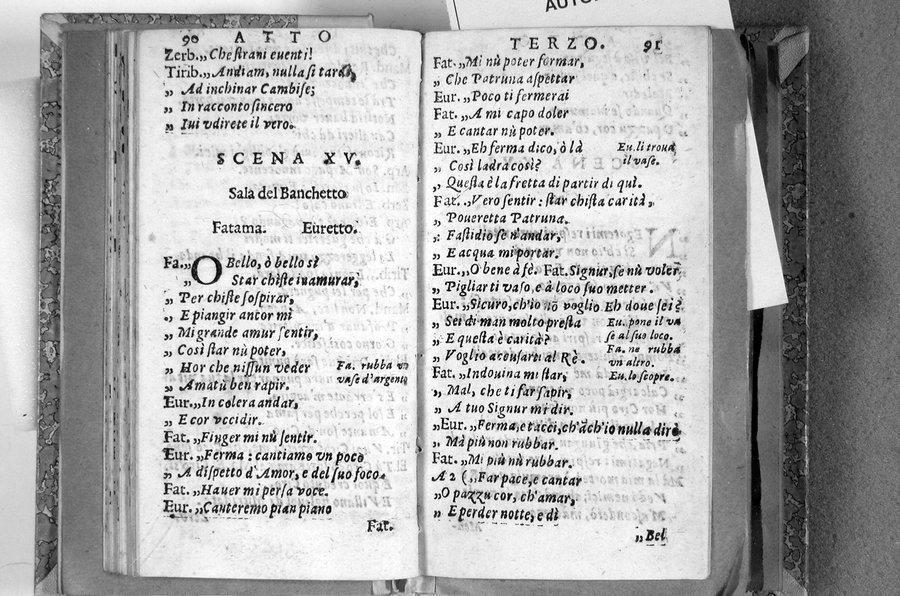 AUTOR
90 ATTO
Zerb. „ Che strani eventi!
Tirib. „ Andiam, nulla si tardi,
„ Ad inchinar Cambise;
„ In racconto sincero
„ Iui vdirete il vero.
SCENA XV.
Sala del Banchetto
Fatama. Euretto.
Fa. „ O Bello, ò bello sì
„ Star chiste inamurar,
„ Per chiste sospirar,
„ E piangir ancor mì
„ Mi grande amur sentir,
„ Così star nù poter,
„ Hor che nissun veder
Fa. rubba vn
„ Amatù ben rapir.
vase d'argento
Eur. „ In colera andar,
„ E cor vccidir.
Fat. „ Finger mi nù sentir.
Eur. „ Ferma: cantiamo vn poco
„ A dispetto d'Amor, e del suo foco.
Fat. „ Hauer mi persa voce.
Eur. „ Canteremo pian piano
Fat.
TERZO. 91
Fat. „ Mi nù poter formar,
„ Che Patruna aspettar
Eur. „ Poco ti fermerai
Fat. „ A mi capo doler
„ E cantar nù poter.
Eur. „ Eh ferma dico, ò là
Eu. li troua
„ Così ladra così?
il vase.
„ Questa è la fretta di partir di quì.
Fat. „ Vero sentir: star chista carità,
„ Poueretta Patruna.
„ Fastidio se n'andar,
„ E acqua mi portar.
Eur. „ O bene à fè. Fat. Signur, se nù voler,
„ Pigliar ti vaso, e à loco suo metter.
Eur. „ Sicuro, ch'io nō voglio Eh doue sei?
„ Sei di man molto presta
Eu. pone il va
„ E questa è carità?
se al suo loco.
Fa. ne rubba
„ Voglio accusarti al Rè.
vn altro.
Fat. „ Indouina mi star,
Eu. lo scopre.
„ Mal, che ti far sapir,
„ A tuo Signur mi dir.
„ Eur. „ Ferma, e tacci, ch'ach'io nulla dirè
„ Mà più non rubbar.
Fat. „ Mi più nù rubbar.
A 2 ( „ Far pace, e cantar
„ O pazzu cor, ch'amar,
„ E perder notte, e dì
„ Bel